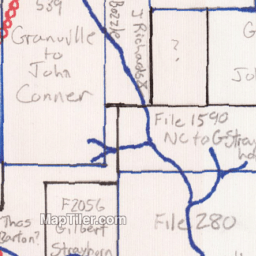 539
Granville
to
John
Conner
Bozzle
J Richards
?
G
Jo
File 1590
NC to G Stray
File 280
F2056
Gilbert
Strayhorn
Thos
Barton?
MapTiler.com